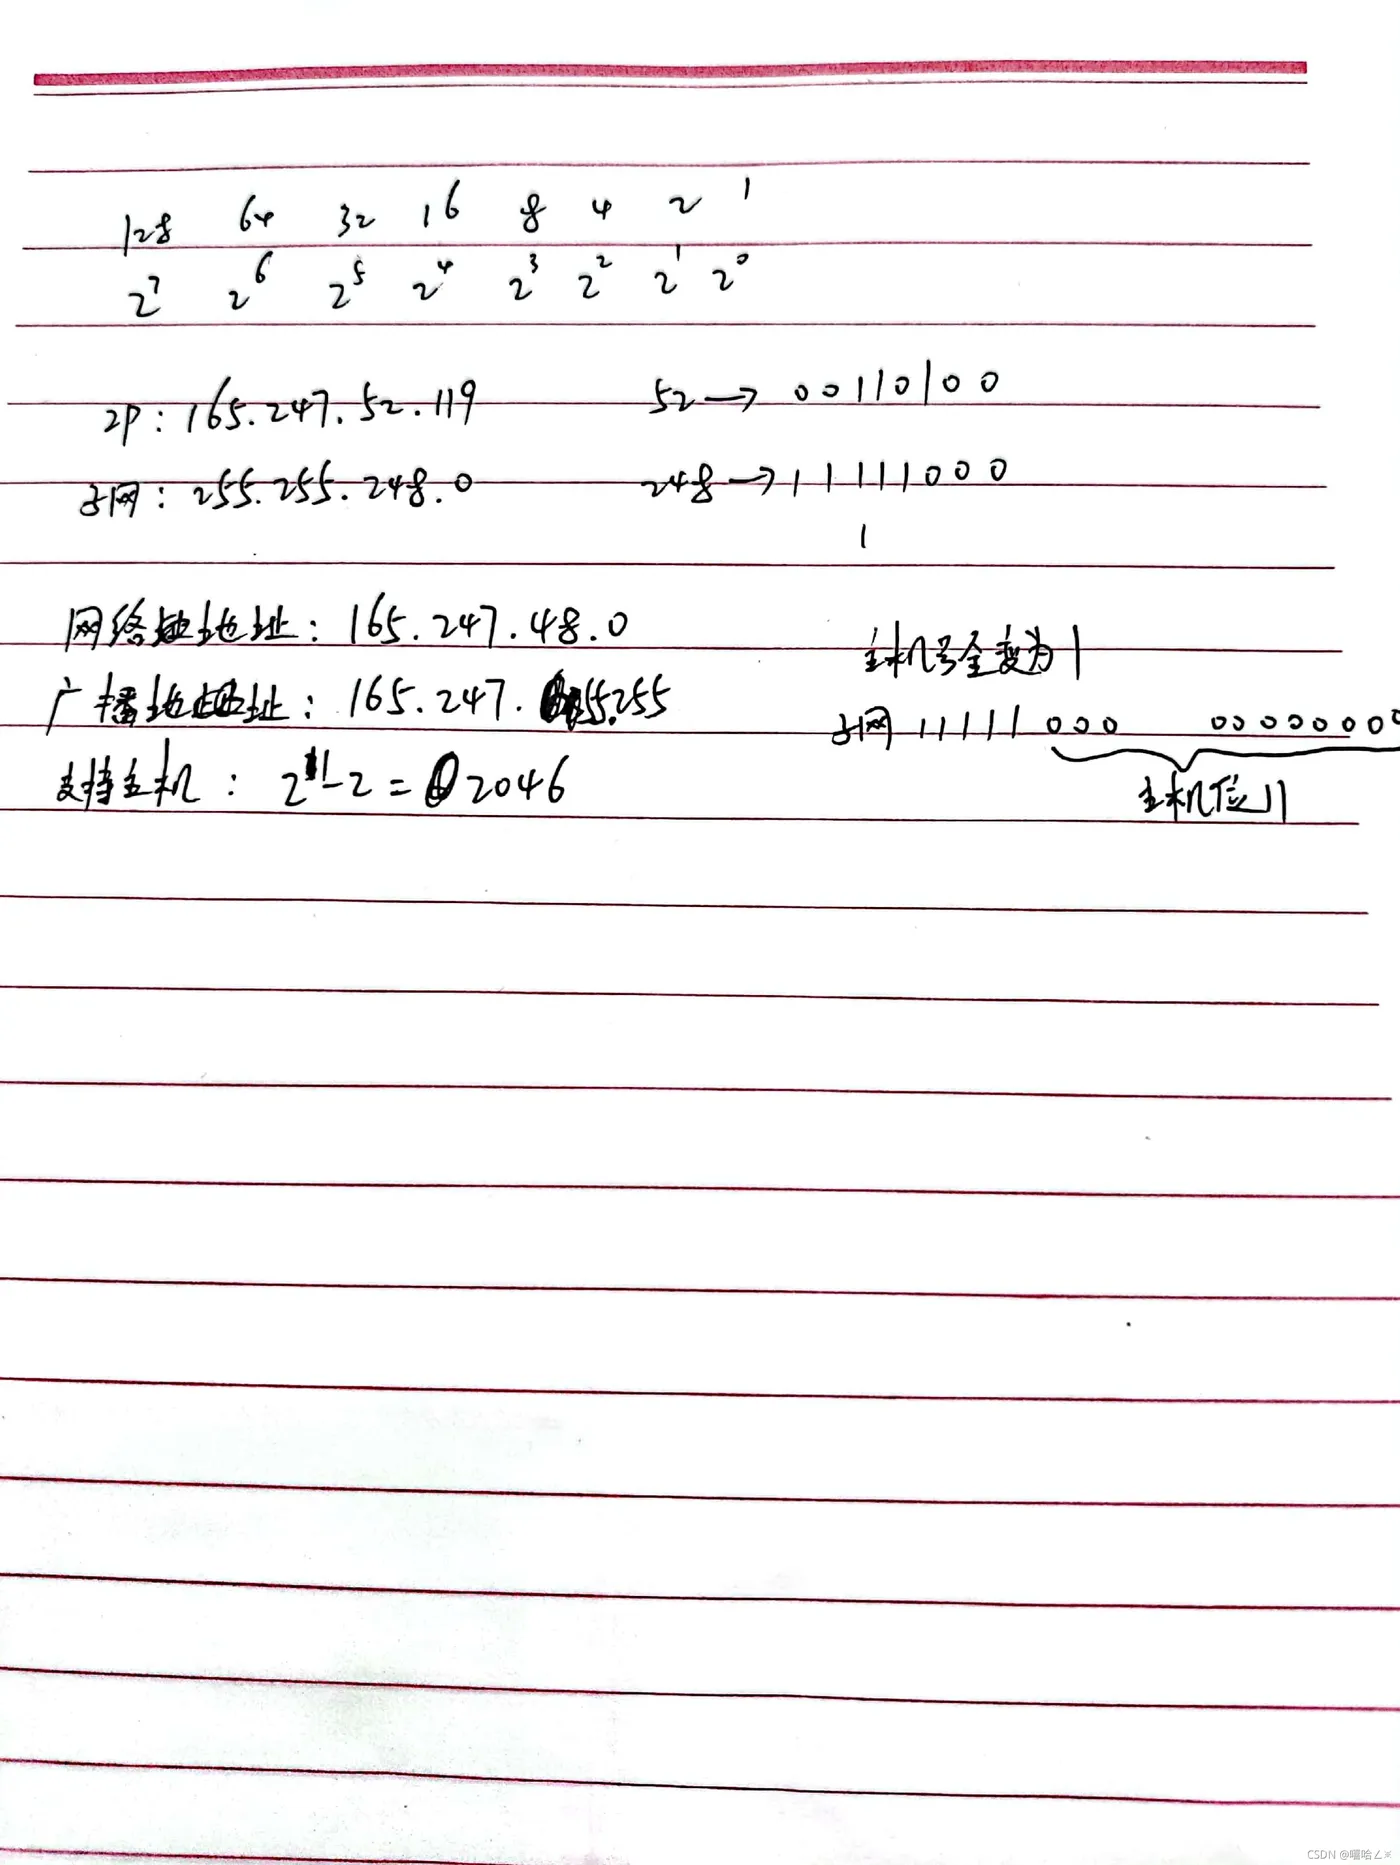 128 64 32 16 8 4 2 1
2^7 2^6 2^5 2^4 2^3 2^2 2^1 2^0
IP: 165.247.52.119 52→00110100
子网: 255.255.248.0 248→11111000
1
网络地址: 165.247.48.0
主机号全变为1
广播地址: 165.247. 55.255
子网 11111000 00000000
支持主机: 2^11-2=2046
主机位11
CSDN @嘻哈∠※